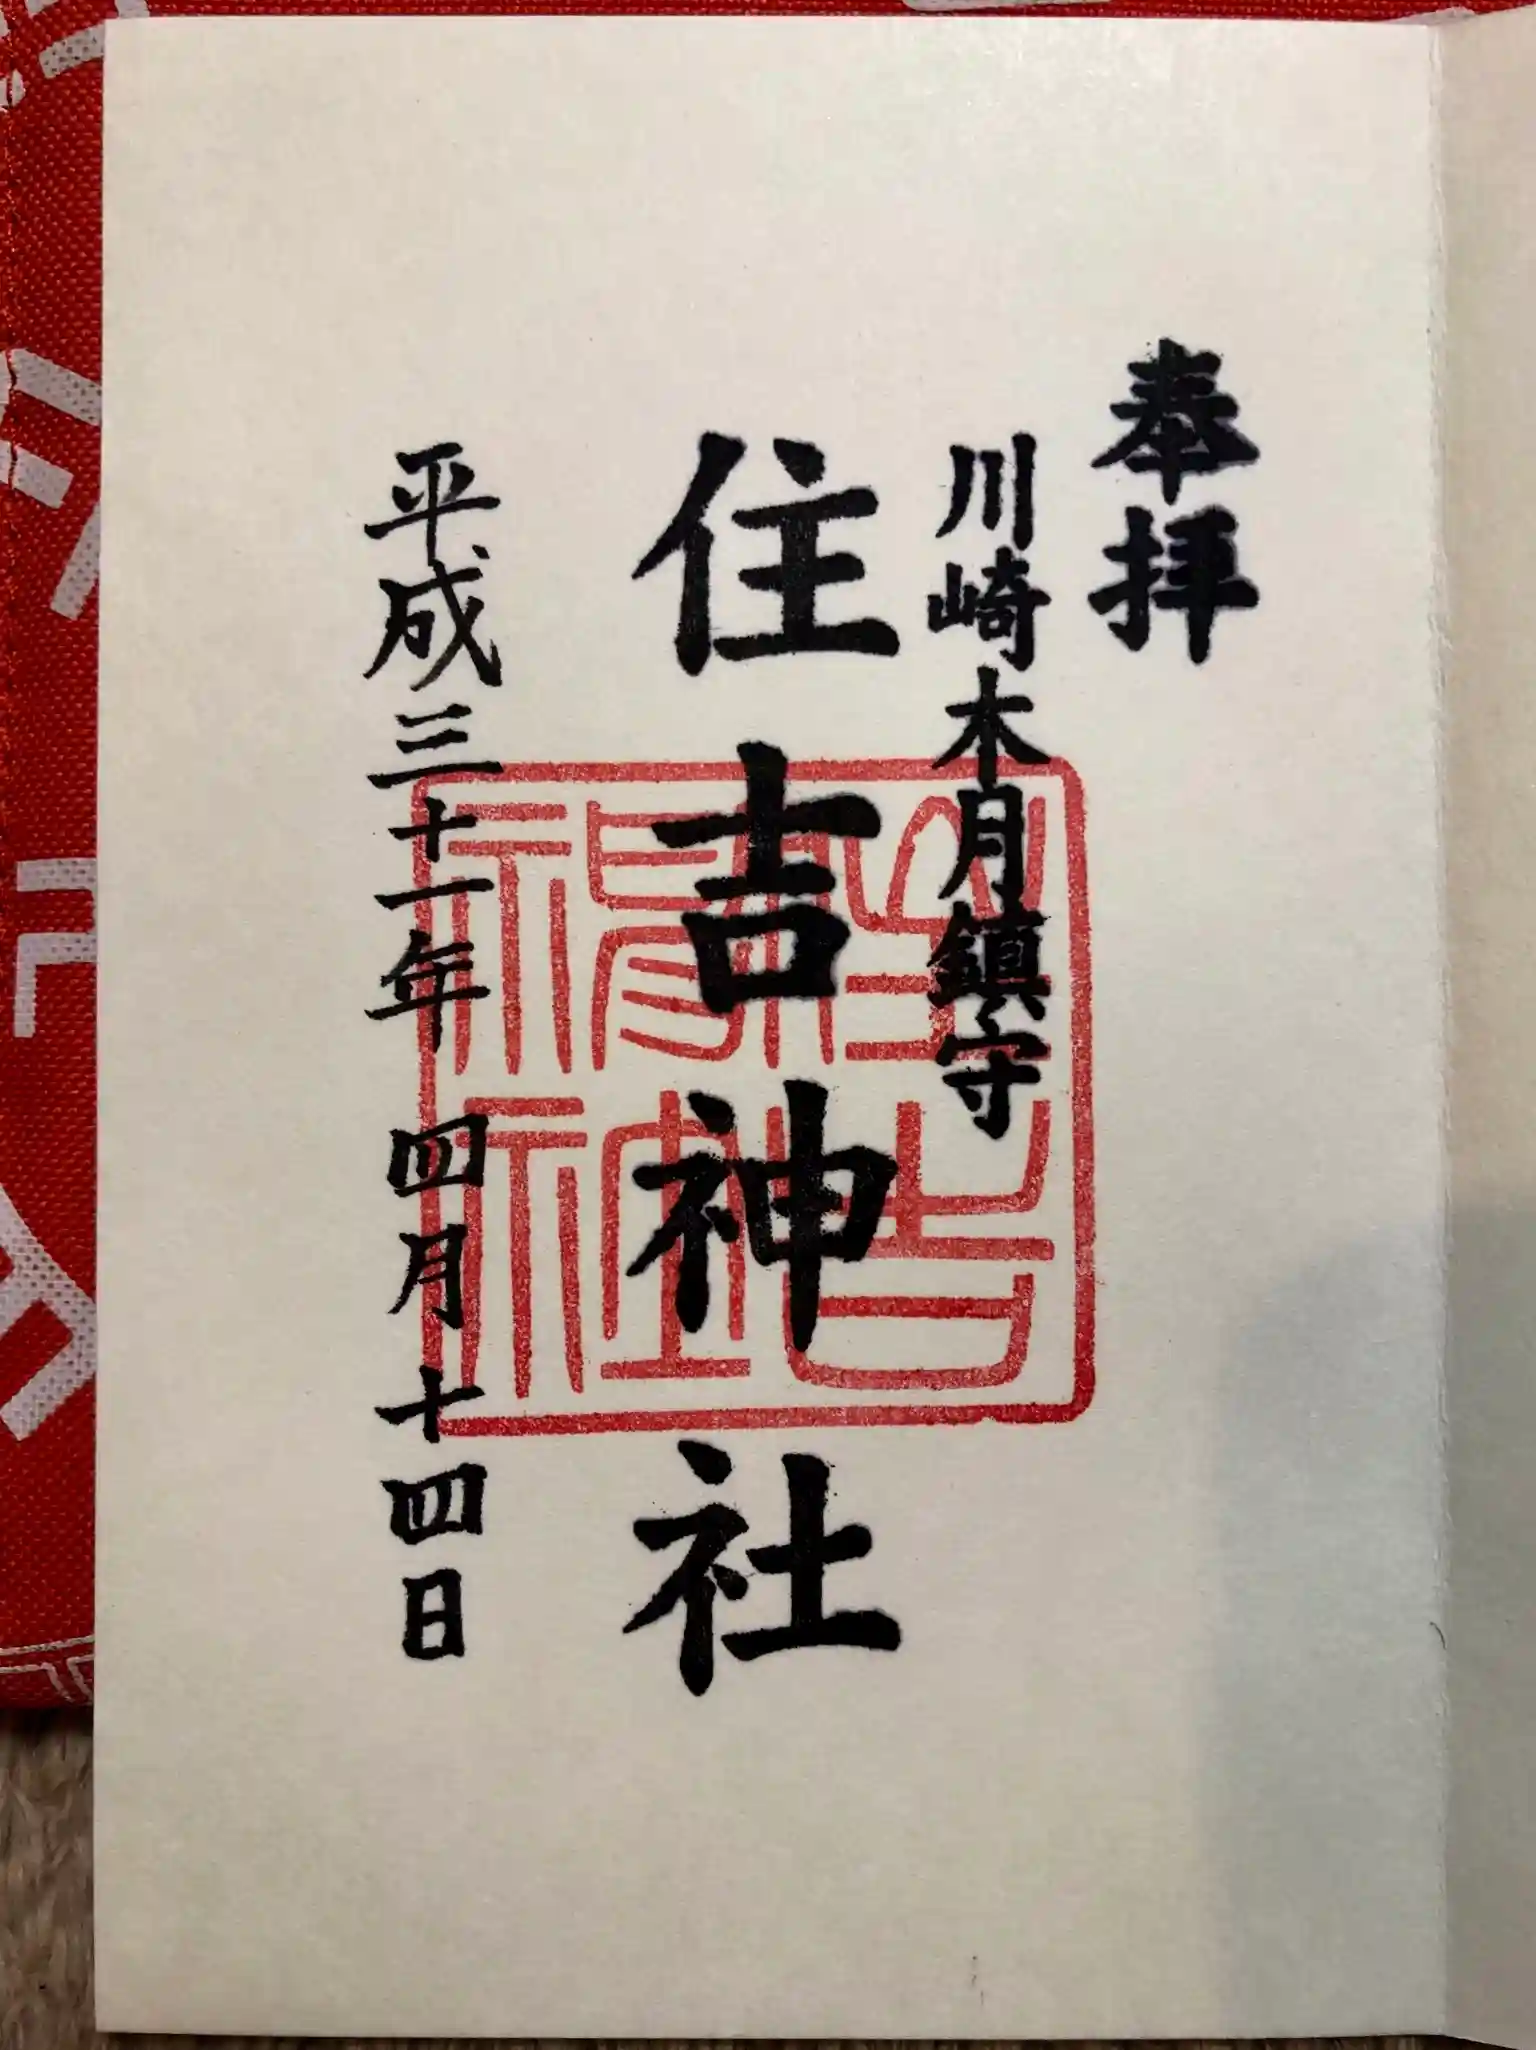 奉拝
川崎木月鎮守
住吉神社
平成三十一年 四月十四日